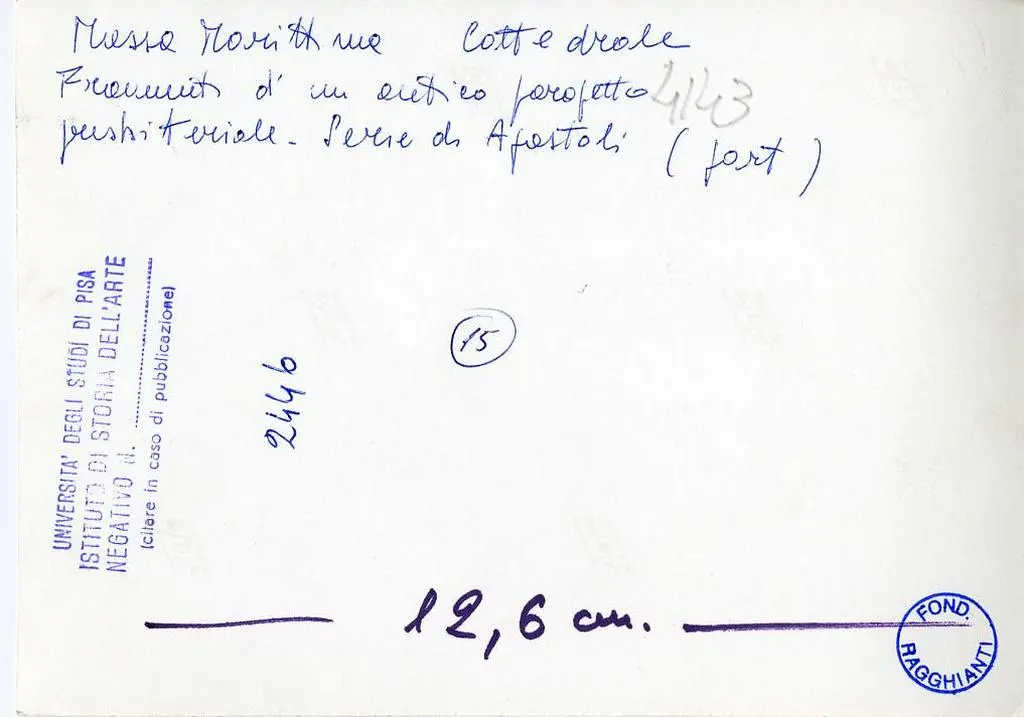 Massa Marittima Cattedrale
Frammenti d' un antico parapetto 4143
presbiteriale - Serie di Apostoli (part)
UNIVERSITA' DEGLI STUDI DI PISA
ISTITUTO DI STORIA DELL'ARTE
NEGATIVO N. ....................
(citare in caso di pubblicazione)
2446
15
12,6 cm.
FOND. RAGGHIANTI